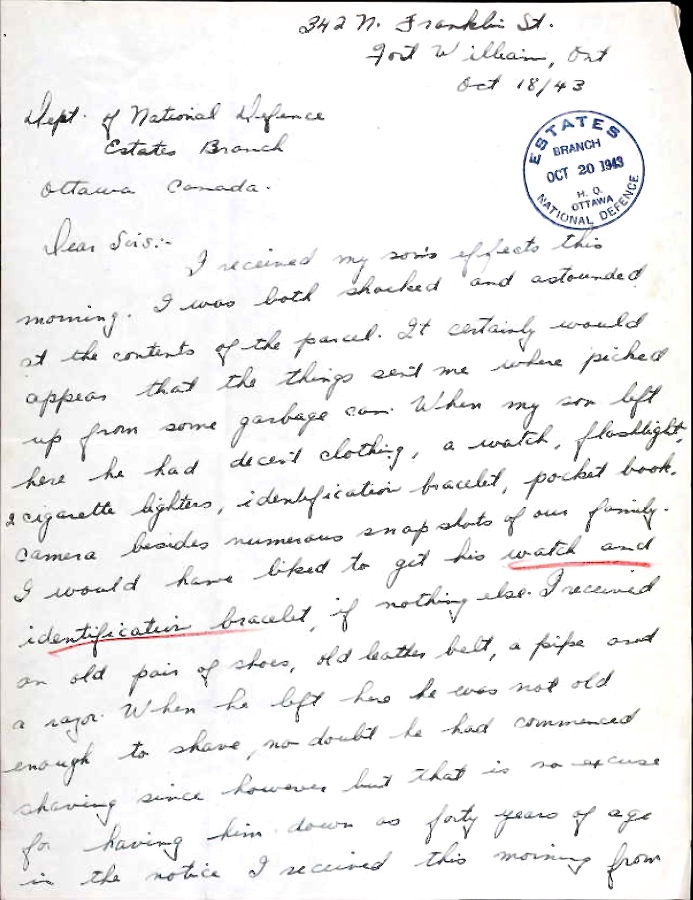 342 N. Franklin St.
Fort William, Ont
Oct 18/43
Dept. of National Defence
Estates Branch
Ottawa Canada.
ESTATES
BRANCH
OCT 20 1943
H. Q.
OTTAWA
NATIONAL DEFENCE
Dear Sirs:-
I received my son's effects this
morning. I was both shocked and astounded
at the contents of the parcel. It certainly would
appear that the things sent me where picked
up from some garbage can. When my son left
here he had decent clothing, a watch, flashlight,
2 cigarette lighters, identification bracelet, pocket book.
camera besides numerous snapshots of our family.
I would have liked to get his watch and
identification bracelet, if nothing else. I received
an old pair of shoes, old leather belt, a pipe and
a razor. When he left here he was not old
enough to shave, no doubt he had commenced
shaving since however but that is no excuse
for having him down as forty years of age
in the notice I received this morning from